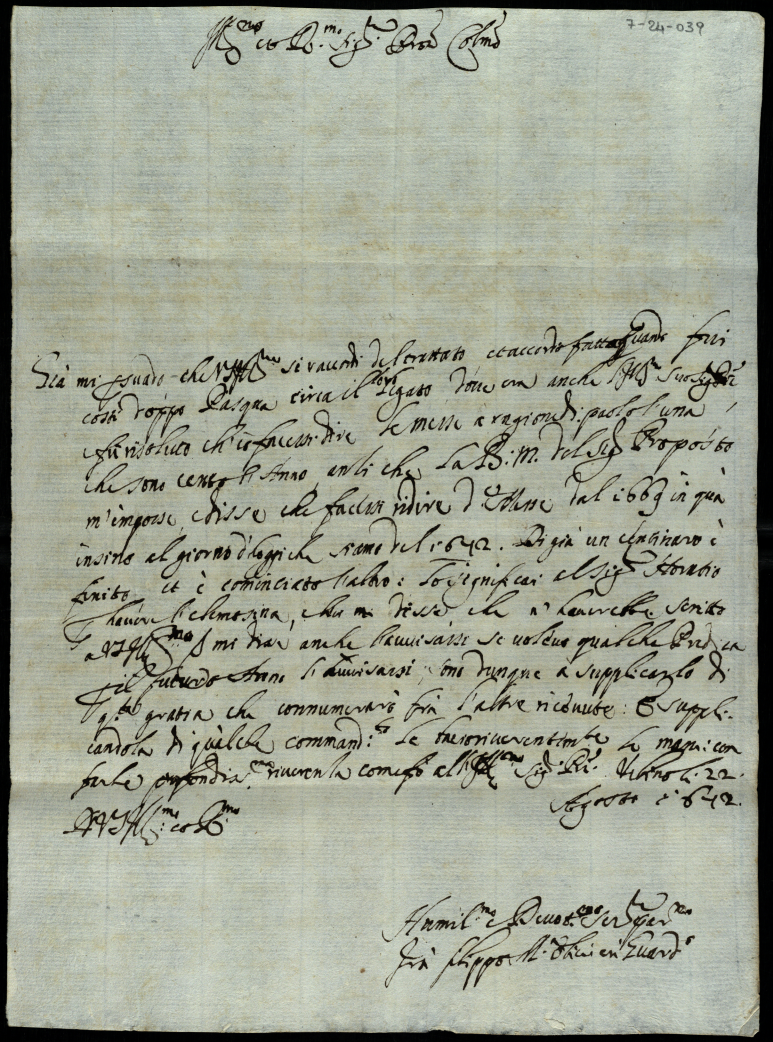 7-24-039
Ill.mo et R.mo Sig.r Pron Colmo
Già mi persuado che V.S. Ill.ma si raccordi del trattato et accordo fatto quando fui
costì doppo Pasqua circa il legato dove era anche l'Ill.mo suo Sig.r
e fu risoluto ch'io facessi dire le messe a ragione di paolo l'una,
che sono cento l'Anno, anzi che la B.M. del Sig.r Proposito
m'impose, e disse che facessi ridire d.e Messe dal in quà
insino al giorno d'hoggi che siamo del 1642. Di già un centinaro è
finito et è cominciato l'altro: Io significai al Sig.r Horatio
l'havere l'elemosina, che mi disse che n'haverebbe scritto
a V.S. Ill.ma mi disse anche l'avvisassi se volevo qualche
p il futuro Anno l'avvisassi, sono dunque a supplicarlo di
q.ta gratia che connumerarò frà l'altre ricevute: E suppli-
candola di qualche command.to le bacio riverentemte le mani: con
farle profondiss.ma riverenza come fo all'Ill.mo Sig.r li 22
Agosto 1642.
D V.S. Ill.ma et R.ma
Humil.mo e Devot.mo Ser.r
Frà Filippo M.a Guard.o